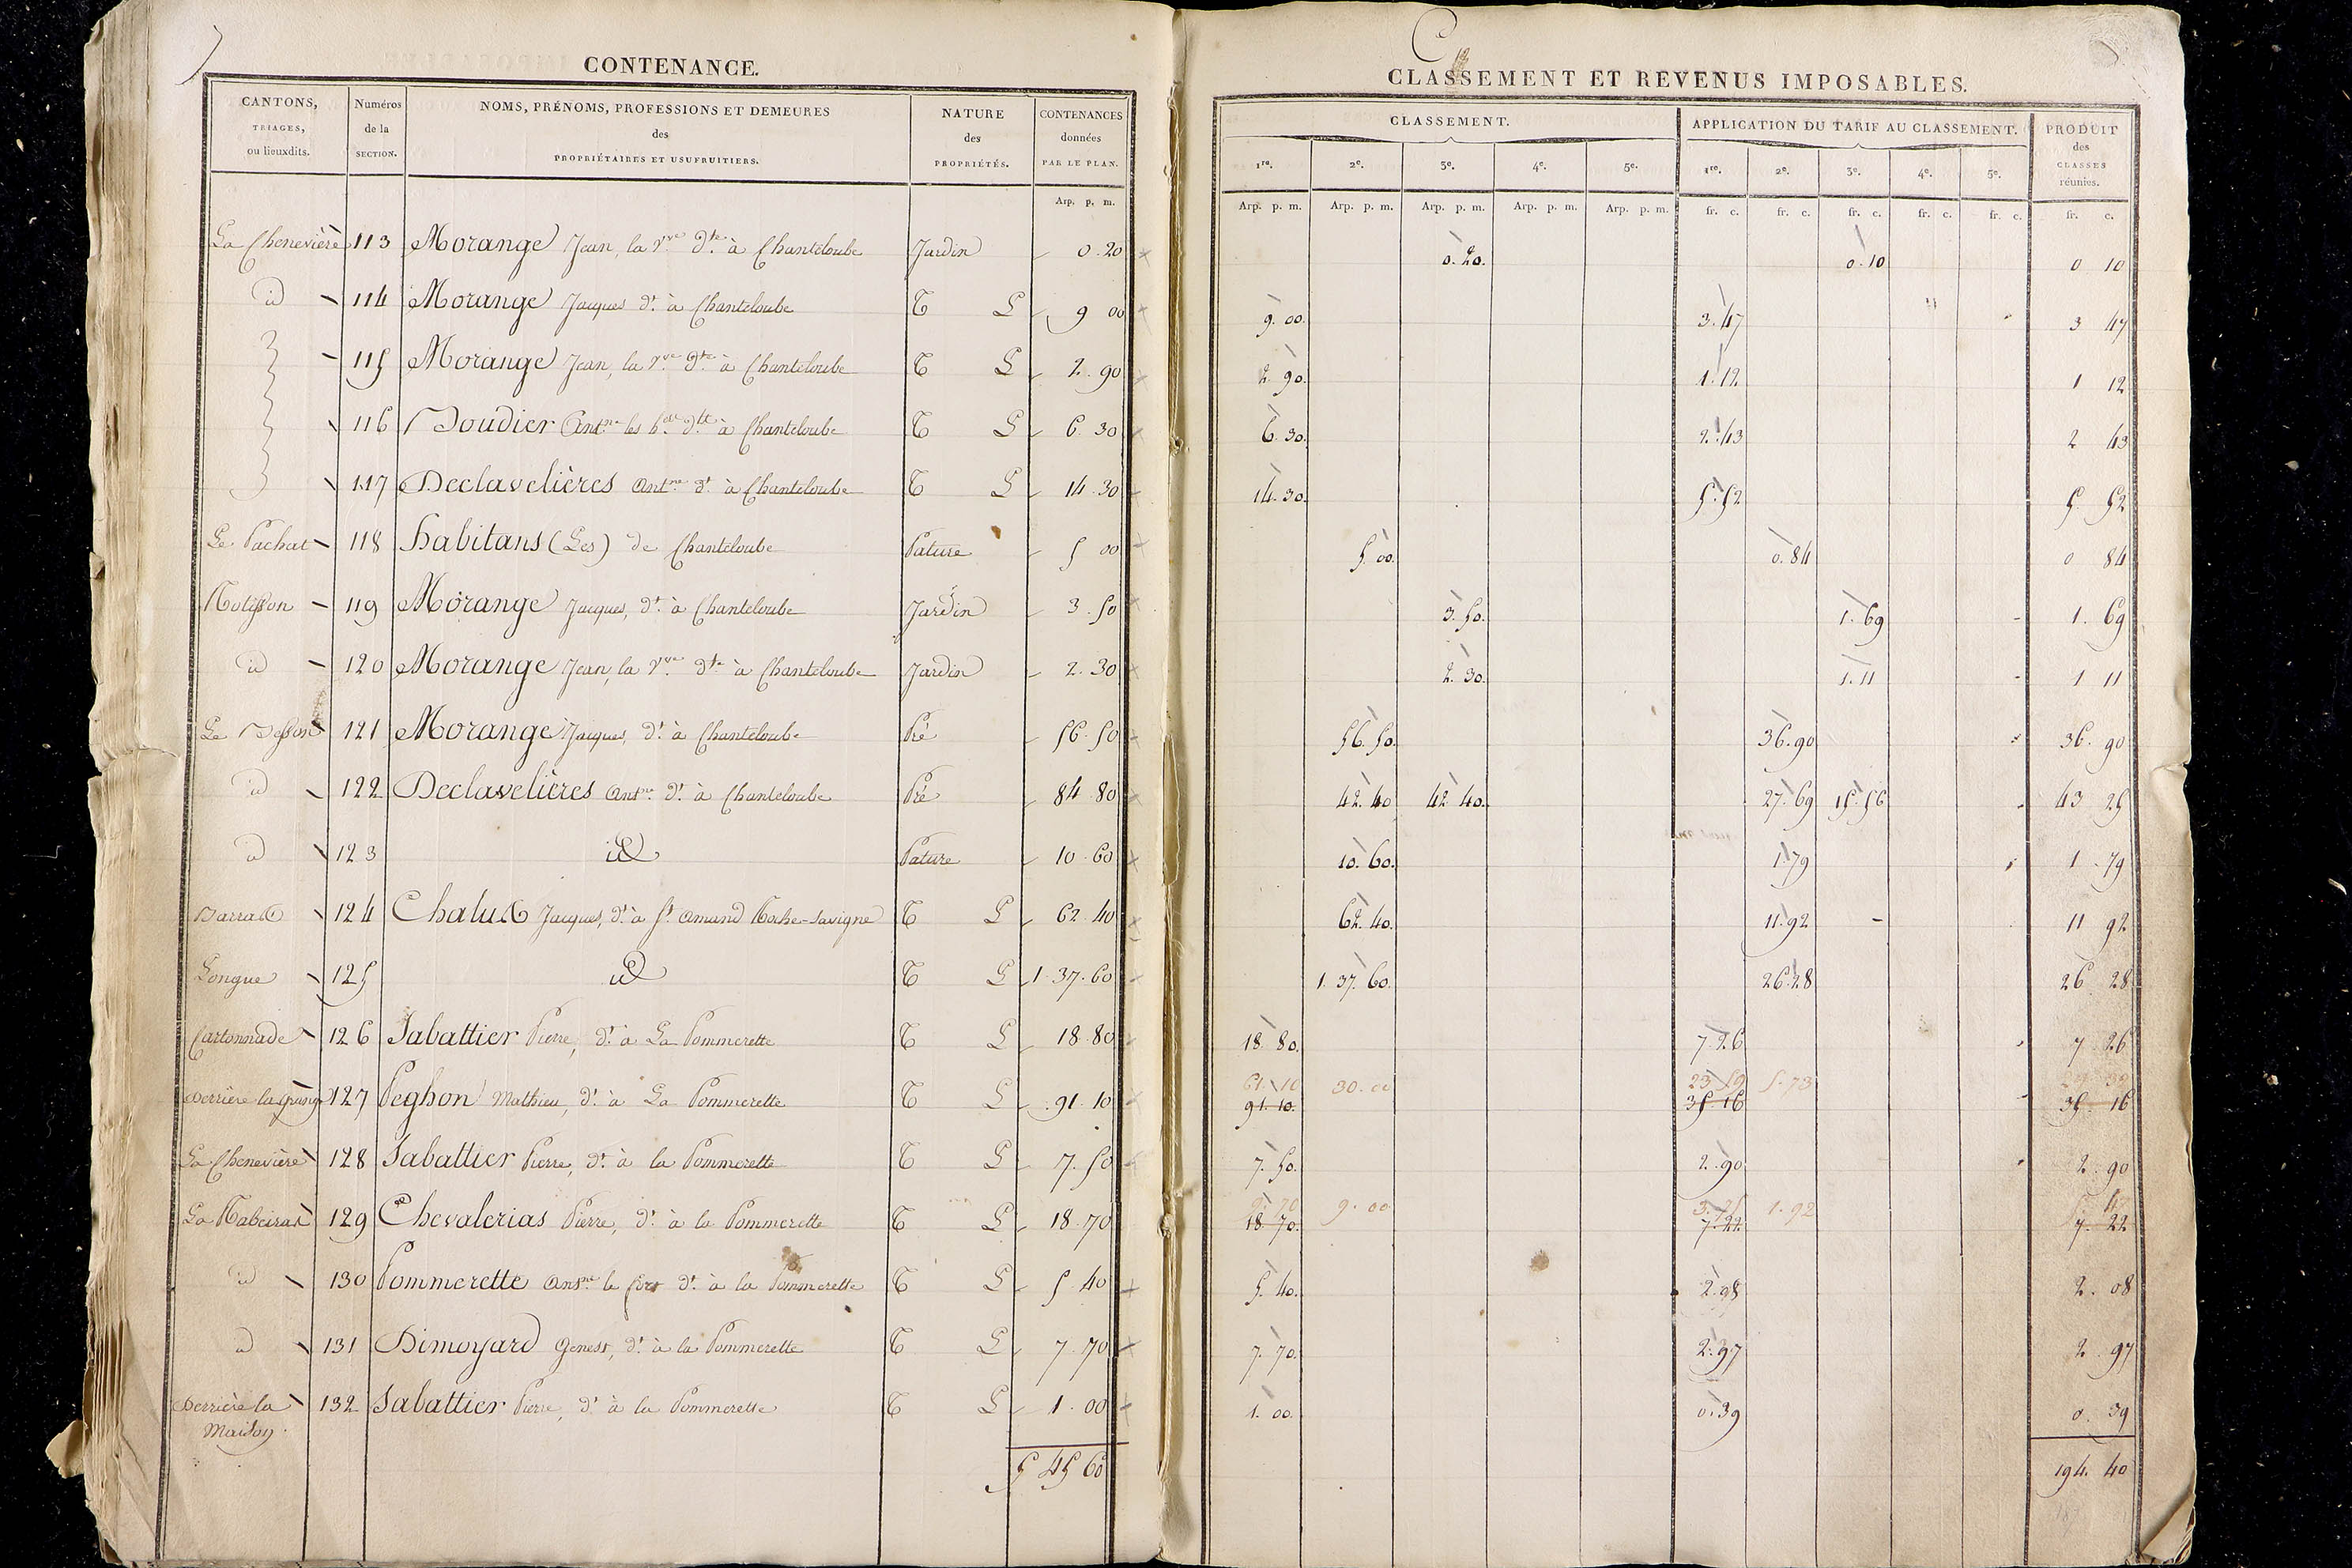 CONTENANCE.
CANTONS, TRIAGES, ou lieuxdits. | Numéros de la SECTION. | NOMS, PRÉNOMS, PROFESSIONS ET DEMEURES des PROPRIÉTAIRES ET USUFRUITIERS. | NATURE des PROPRIÉTÉS. | CONTENANCES données PAR LE PLAN.
Arp. p. m.
La Chenevière 113 Morange Jean, la Vve dte à Chanteloube Jardin 0.20
id 114 Morange Jacques dt à Chanteloube T L 9 00
115 Morange Jean, la Vve dte à Chanteloube T L 2.90
116 Boudier Antne les hers dts à Chanteloube T L 6.30
117 Declavelières Antne dt à Chanteloube T L 14.30
Le Pachat 118 habitans (Les) de Chanteloube Pature 5 00
119 Morange Jacques, dt à Chanteloube Jardin 3.50
id 120 Morange Jean, la Vve dte à Chanteloube Jardin 2.30
Le 121 Morange Jacques, dt à Chanteloube Pré 56.50
id 122 Declavelières Antne dt à Chanteloube Pré 84.80
id 123 id Pature 10.60
124 Chalux Jacques, dt à St Amand Roche-Savigne T L 62.40
Longue 125 id T L 1.37.60
Cartonnade 126 Sabattier Pierre, dt à La Pommerette T L 18.80
Derrière la Grange 127 Peghon Mathieu, dt à La Pommerette T L 91.10
La Chenevière 128 Sabattier Pierre, dt à la Pommerette T L 7.50
La 129 Chevalerias Pierre, dt à la Pommerette T L 18.70
id 130 Pommerette Antne le dt à la Pommerette T L 5.40
id 131 Dimoyard Genest, dt à la Pommerette T L 7.70
Derrière la Maison 132 Sabattier Pierre, dt à la Pommerette T L 1.00
5 45 60
CLASSEMENT ET REVENUS IMPOSABLES.
CLASSEMENT. | APPLICATION DU TARIF AU CLASSEMENT. | PRODUIT des CLASSES réunies.
1re. 2e. 3e. 4e. 5e. 1re. 2e. 3e. 4e. 5e.
Arp. p. m. Arp. p. m. Arp. p. m. Arp. p. m. Arp. p. m. fr. c. fr. c. fr. c. fr. c. fr. c. fr. c.
0.20. 0.10 0 10
9.00. 3.47 3 47
2.90. 1.12 1 12
6.30. 2.43 2 43
14.30. 5.52 5 52
5.00. 0.84 0 84
3.50. 1.69 1.69
2.30. 1.11 1 11
56.50. 36.90 36.90
42.40 42.40. 27.69 15.56 43 25
10.60. 1.79 1.79
62.40. 11.92 11 92
1.37.60. 26.28 26 28
18.80. 7.26 7 26
61.10 30.00 23 59 5.73 29 32
91.10. 35.16 35.16
7.50. 2.90 2.90
9.70 9.00 3.75 1.92
18.70. 7.22 7.22
5.40. 2.98 2.08
7.70. 2.97 2.97
1.00. 0.39 0.39
194.40